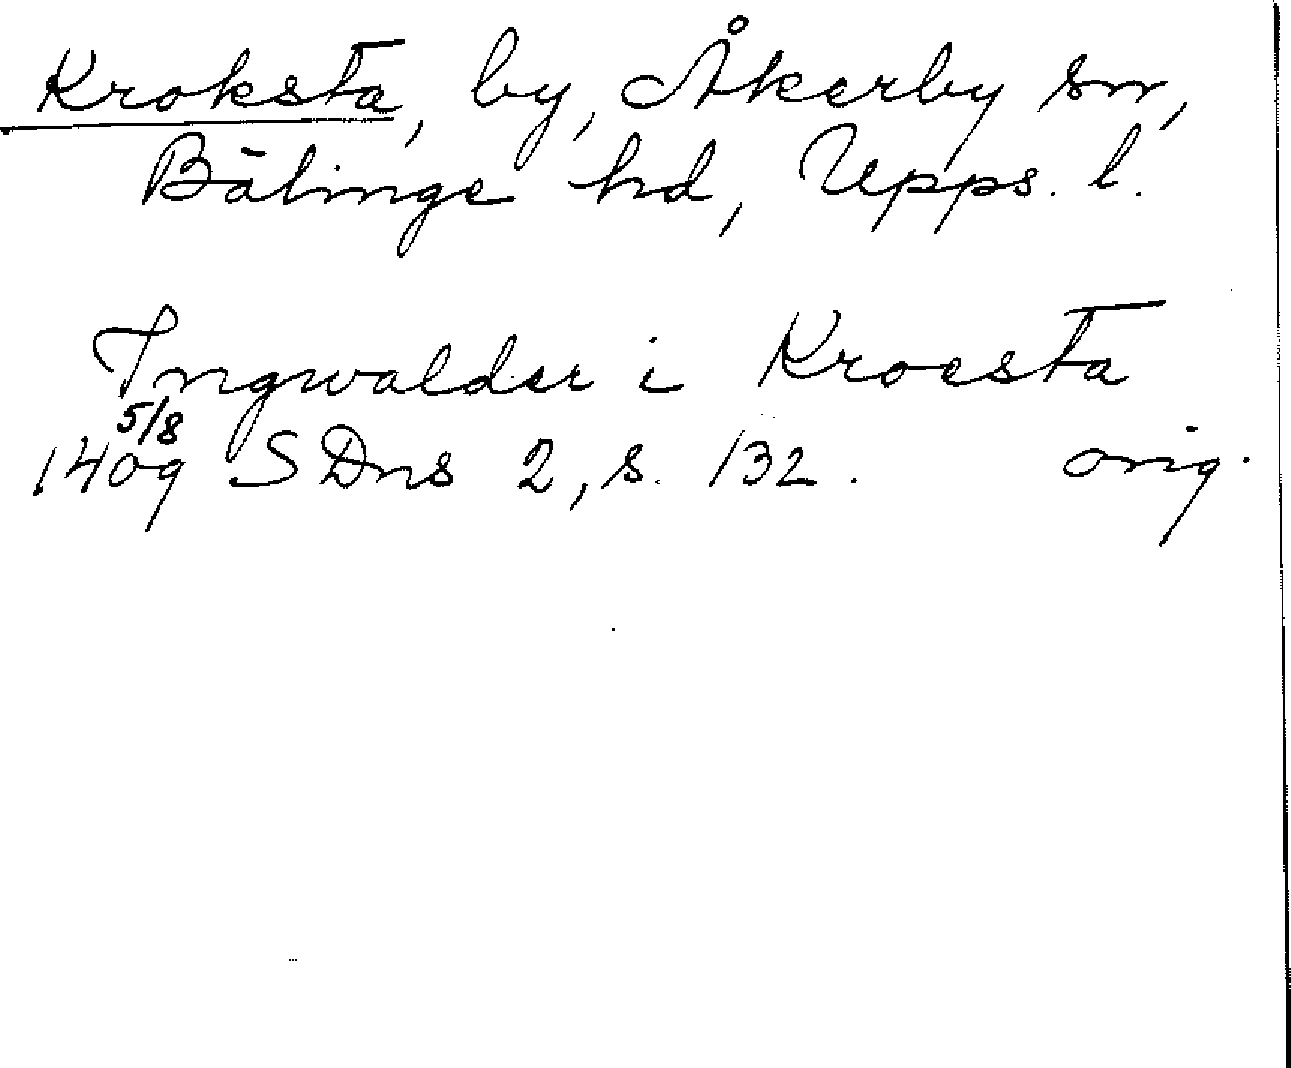 Kroksta, by, Åkerby sn,
Bälinge hd, Upps. l.
Ingwalder i Kroesta
5/8
1409 SDns 2, s. 132. orig.